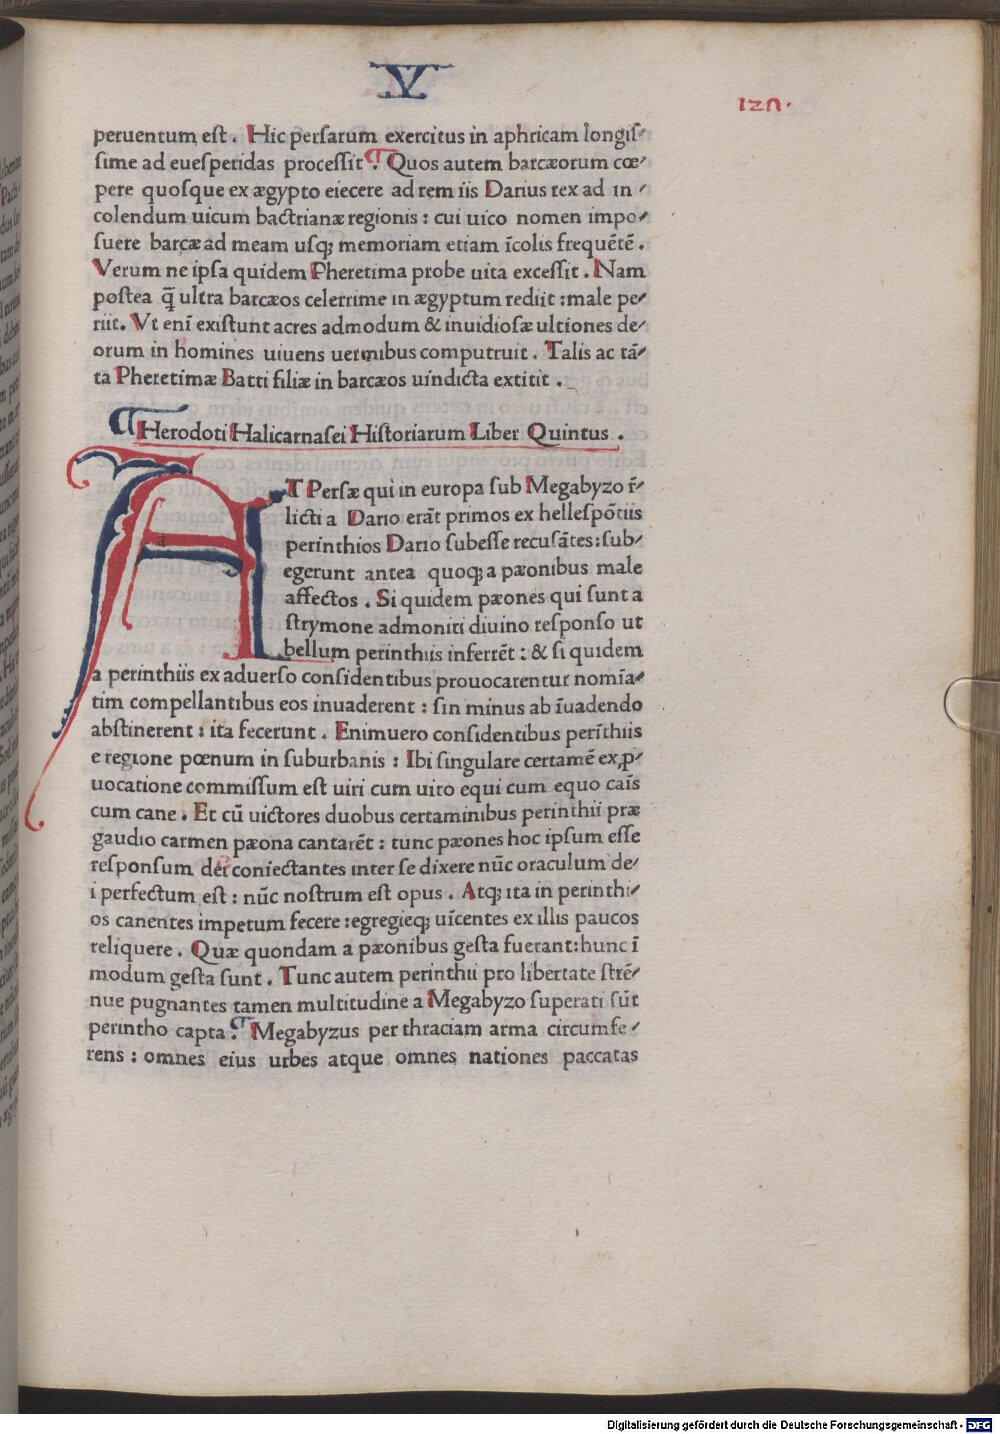 V
120.
peruentum est. Hic persarum exercitus in aphricam longis⸗
sime ad euesperidas processit. Quos autem barcæorum cœ⸗
pere quosque ex ægypto eiecere ad rem iis Darius rex ad in⸗
colendum uicum bactrianæ regionis: cui uico nomen impo⸗
suere barcæ ad meam usq; memoriam etiam īcolis frequētē.
Verum ne ipsa quidem Pheretima probe uita excessit. Nam
postea q̄ ultra barcæos celerrime in ægyptum rediit: male pe⸗
riit. Vt enī existunt acres admodum & inuidiosæ ultiones de⸗
orum in homines uiuens uermibus computruit. Talis ac tā⸗
ta Pheretimæ Batti filiæ in barcæos uindicta extitit.
Herodoti Halicarnasei Historiarum Liber Quintus.
AT Persæ qui in europa sub Megabyzo r̄⸗
licti a Dario erāt primos ex hellespōtiis
perinthios Dario subesse recusātes: sub⸗
egerunt antea quoq; a pæonibus male
affectos. Si quidem pæones qui sunt a
strymone admoniti diuino responso ut
bellum perinthiis inferrēt: & si quidem
a perinthiis ex aduerso considentibus prouocarentur nomīa⸗
tim compellantibus eos inuaderent: sin minus ab īuadendo
abstinerent: ita fecerunt. Enimuero considentibus perīthiis
e regione pœnum in suburbanis: Ibi singulare certamē ex ꝓ⸗
uocatione commissum est uiri cum uiro equi cum equo canis
cum cane. Et cū uictores duobus certaminibus perinthii præ
gaudio carmen pæona cantarēt: tunc pæones hoc ipsum esse
responsum dei coniectantes inter se dixere nūc oraculum de⸗
i perfectum est: nūc nostrum est opus. Atq; ita in perinthi⸗
os canentes impetum fecere: egregieq; uicentes ex illis paucos
reliquere. Quæ quondam a pæonibus gesta fuerant: hunc ī
modum gesta sunt. Tunc autem perinthii pro libertate strē⸗
nue pugnantes tamen multitudine a Megabyzo superati sūt
perintho capta. Megabyzus per thraciam arma circumfe⸗
rens: omnes eius urbes atque omnes nationes paccatas
Digitalisierung gefördert durch die Deutsche Forschungsgemeinschaft - DFG